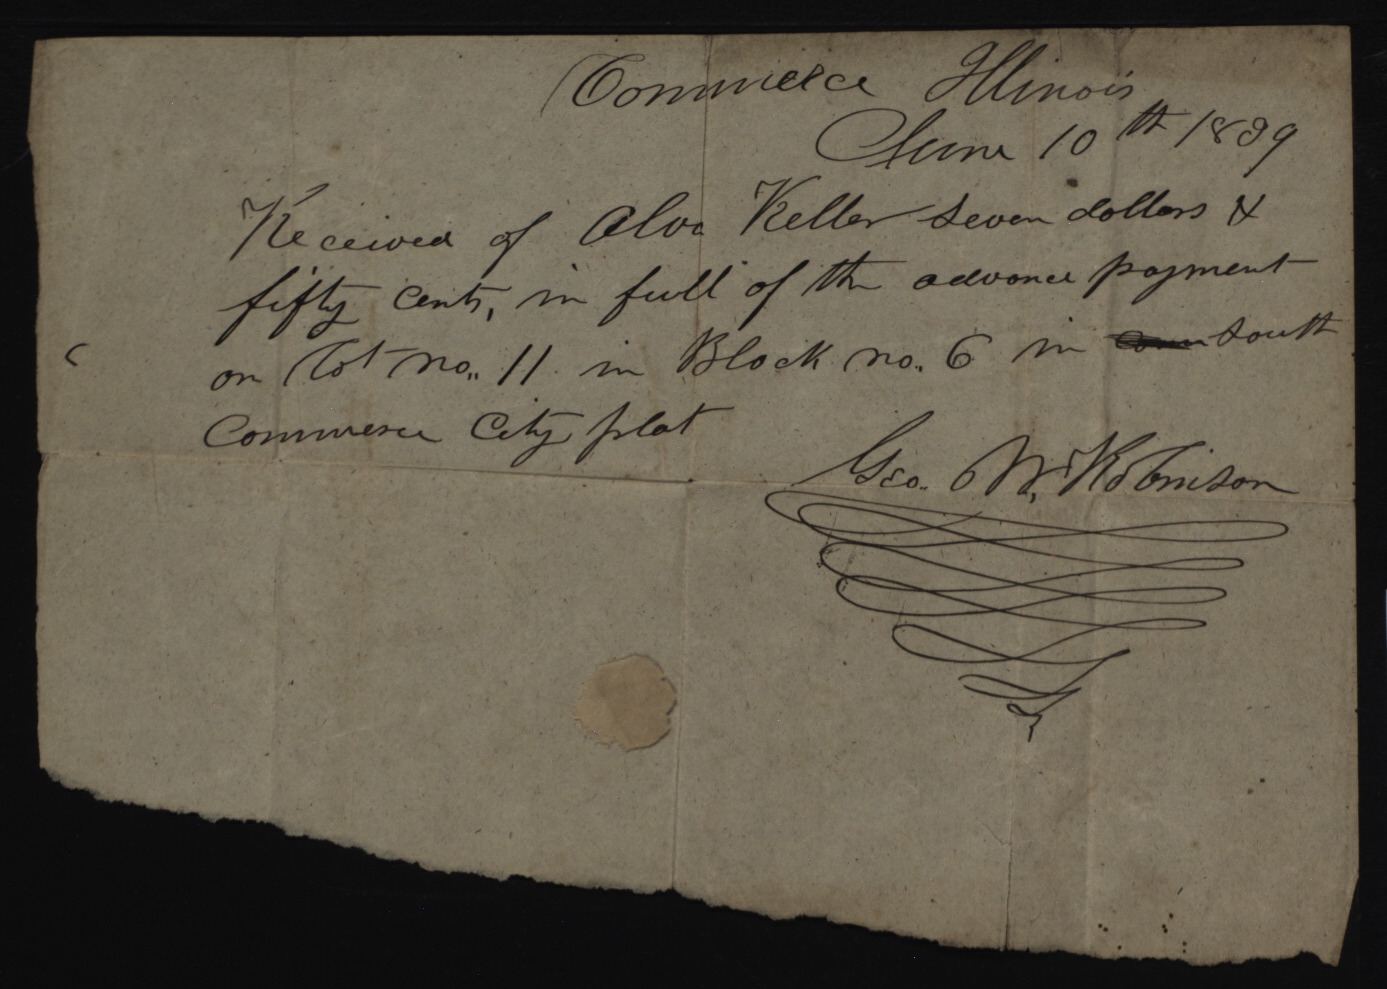 Commerce Illinois
June 10th 1839
Received of Alva Keller seven dollars &
fifty cents, in full of the advance payment
on Lot no.. 11 in Block no.. 6 in South
Commerce City plat
Geo. W. Robinson